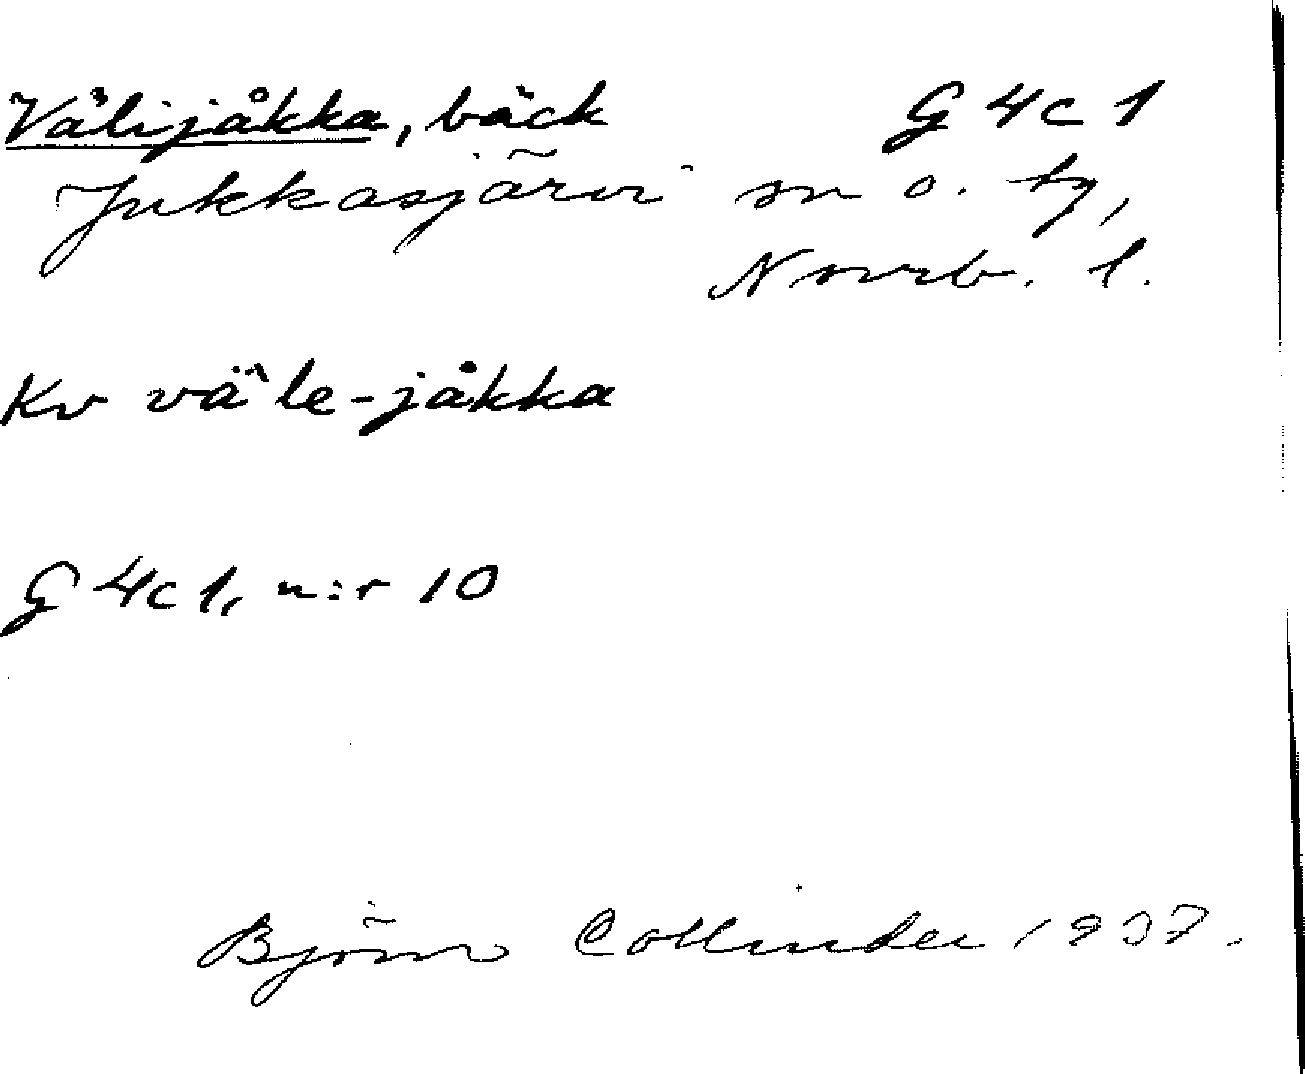 Välijåkka, bäck G 4c 1
Jukkasjärvi sn o. tg,
Norrb. l.
Kv väˆle-jåkka
G 4c 1, n:r 10
Björn Collinder 1937.